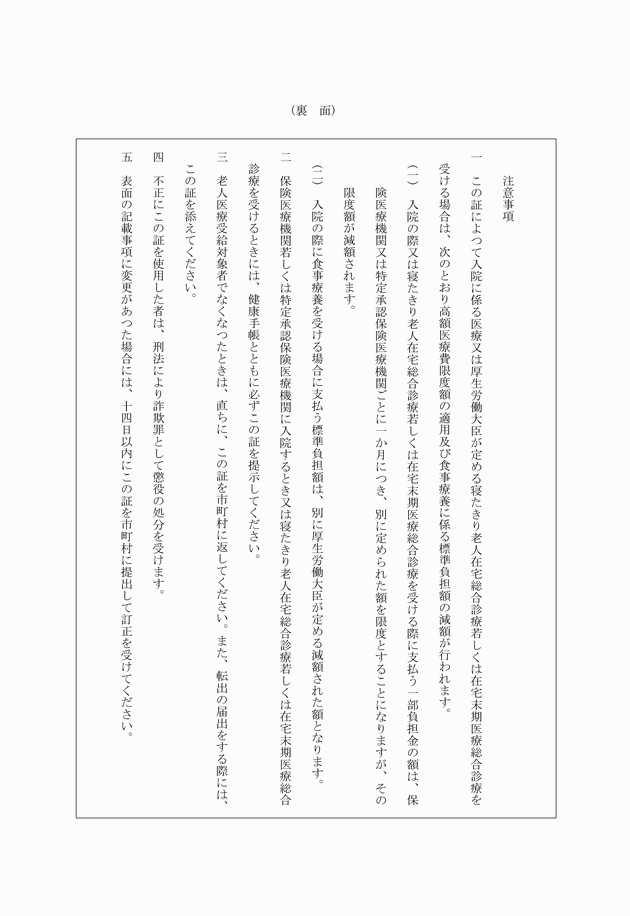 （裏　面）
注意事項
一　この証によつて入院に係る医療又は厚生労働大臣が定める寝たきり老人在宅総合診療若しくは在宅末期医療総合診療を
受ける場合は、次のとおり高額医療費限度額の適用及び食事療養に係る標準負担額の減額が行われます。
（一）　入院の際又は寝たきり老人在宅総合診療若しくは在宅末期医療総合診療を受ける際に支払う一部負担金の額は、保
険医療機関又は特定承認保険医療機関ごとに一か月につき、別に定められた額を限度とすることになりますが、その
限度額が減額されます。
（二）　入院の際に食事療養を受ける場合に支払う標準負担額は、別に厚生労働大臣が定める減額された額となります。
二　保険医療機関若しくは特定承認保険医療機関に入院するとき又は寝たきり老人在宅総合診療若しくは在宅末期医療総合
診療を受けるときには、健康手帳とともに必ずこの証を提示してください。
三　老人医療受給対象者でなくなつたときは、直ちに、この証を市町村に返してください。また、転出の届出をする際には、
この証を添えてください。
四　不正にこの証を使用した者は、刑法により詐欺罪として懲役の処分を受けます。
五　表面の記載事項に変更があつた場合には、十四日以内にこの証を市町村に提出して訂正を受けてください。